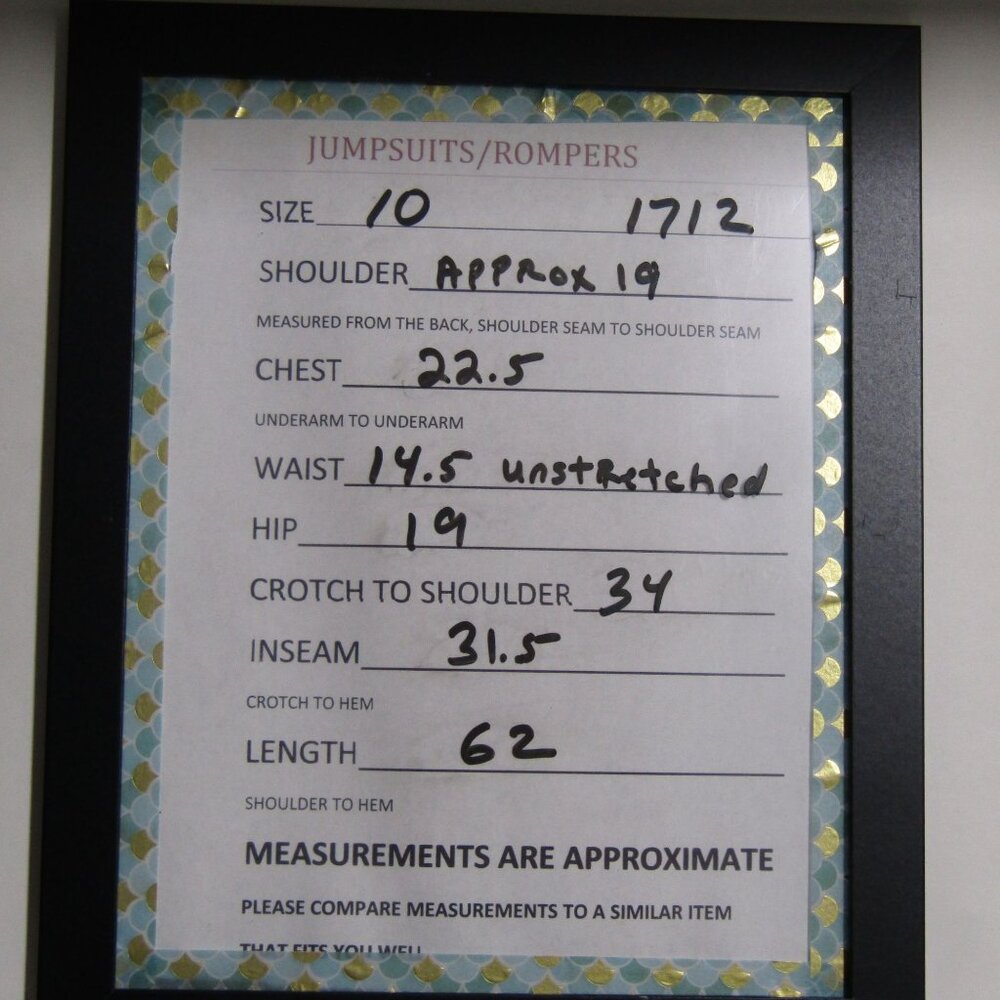 JUMPSUITS/ROMPERS
SIZE 10 1712
SHOULDER APPROX 19
MEASURED FROM THE BACK, SHOULDER SEAM TO SHOULDER SEAM
CHEST 22.5
UNDERARM TO UNDERARM
WAIST 14.5 unstRetched
HIP 19
CROTCH TO SHOULDER 34
INSEAM 31.5
CROTCH TO HEM
LENGTH 62
SHOULDER TO HEM
MEASUREMENTS ARE APPROXIMATE
PLEASE COMPARE MEASUREMENTS TO A SIMILAR ITEM
THAT FITS YOU WELL